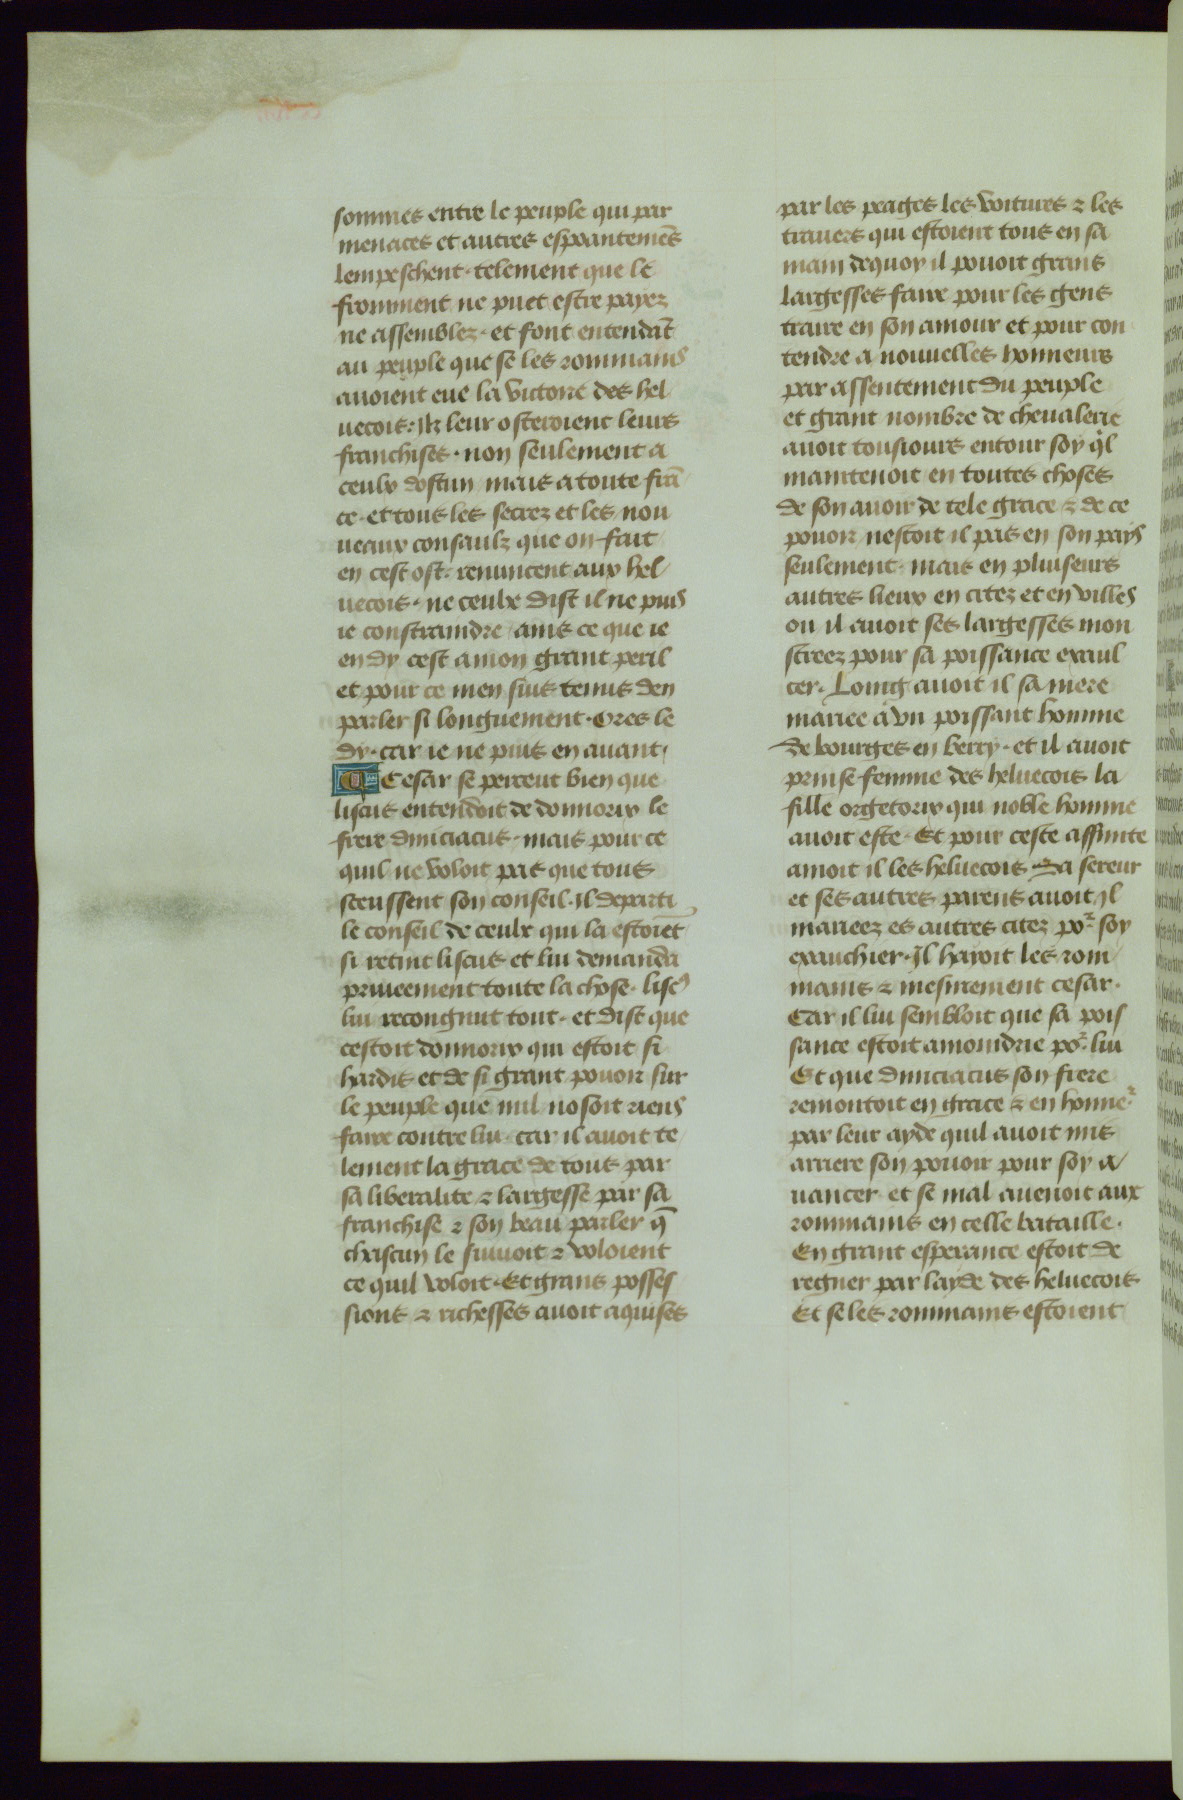 sommes entre le peuple qui par
menaces et autres espoantemẽs
lempeschent · telement que le
fromment ne puet estre payez
ne assemblez · et font entendãt
au peuple que se les rommains
auoient eue la victoire des hel
uecois : Jlz leur osteroient leurs
franchises · non seulement a
ceulx dostun mais a toute frã
ce · et tous les secrez et les nou
ueaux consaulz que on fait
en cest ost · renuncent aux hel
uecois · ne ceulx dist il ne puis
ie constraindre ains ce que ie
en dy cest a mon grant peril
et pour ce men suis tenus den
parler si longuement · Ores le
dy · car ie ne puis en auant ·
Cesar se perceut bien que
liscus entendoit de donnorix le
frere diuiciacus · mais pour ce
quil ne voloit pas que tous
sceussent son conseil · il departi
le conseil de ceulx qui la estoiẽt
si retint liscus et lui demanda
priueement toute la chose · liscꝰ
lui recongnut tout · et dist que
cestoit donnorix qui estoit si
hardis et de si grant pouoir sur
le peuple que nul nosoit riens
faire contre lui · car il auoit te
lement la grace de tous par
sa liberalite ⁊ largesse par sa
franchise ⁊ son beau parler q̃
chascun le siuuoit ⁊ voloient
ce quil voloit · Et grans posses
sions ⁊ richesses auoit aquises
par les peages les voitures ⁊ les
trauers qui estoient tous en sa
main dequoy il pouoit grans
largesses faire pour les gens
traire en son amour et pour con
tendre a nouuelles honneurs
par assentement du peuple
et grant nombre de cheualerie
auoit tousiours entour soy qͥl
maintenoit en toutes choses
de son auoir de tele grace ⁊ de ce
pouoir nestoit il pas en son pays
seulement · mais en pluiseurs
autres lieux en citez et en villes
ou il auoit ses largesses mon
streez pour sa poissance exaul
cer · Loing auoit il sa mere
mariee a vn poissant homme
de bourges en berry · et il auoit
prinse femme des heluecois la
fille orgetorix qui noble homme
auoit este · Et pour ceste affinite
amoit il les heluecois Sa sereur
et ses autres parens auoit Jl
marieez es autres citez poᷣ soy
exauchier · Jl hayoit les rom
mains ⁊ mesmement cesar ·
Car il lui sembloit que sa pois
sance estoit amoindrie poᷣ lui
Et que diuiciacus son frere
remontoit en grace ⁊ en honneᷣ
par leur ayde quil auoit mis
arriere son pouoir pour soy a
uancer · et se mal auenoit aux
rommains en celle bataille ·
En grant esperance estoit de
regner par layde des heluecois
Et se les rommains estoient